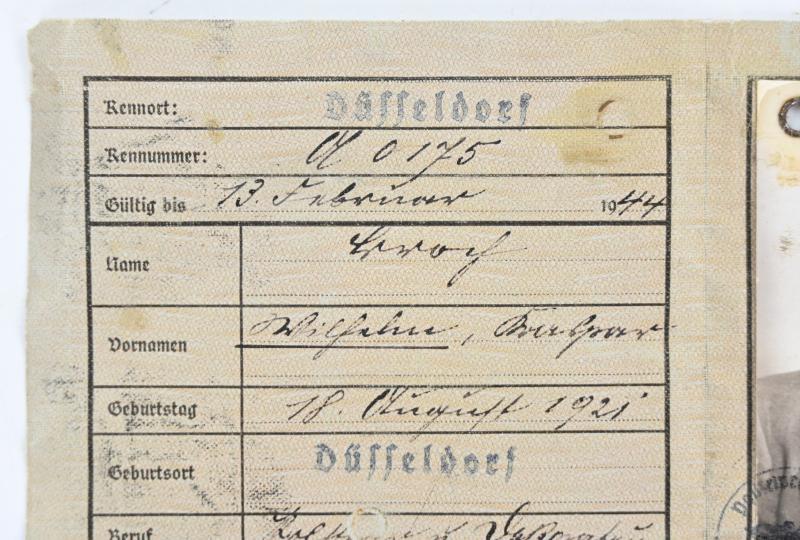 Kennort: Düsseldorf
Kennummer: A 0175
Gültig bis 13. Februar 1944
Name
Vornamen Wilhelm, Kaspar
Geburtstag 18. August 1921
Geburtsort Düsseldorf
Beruf